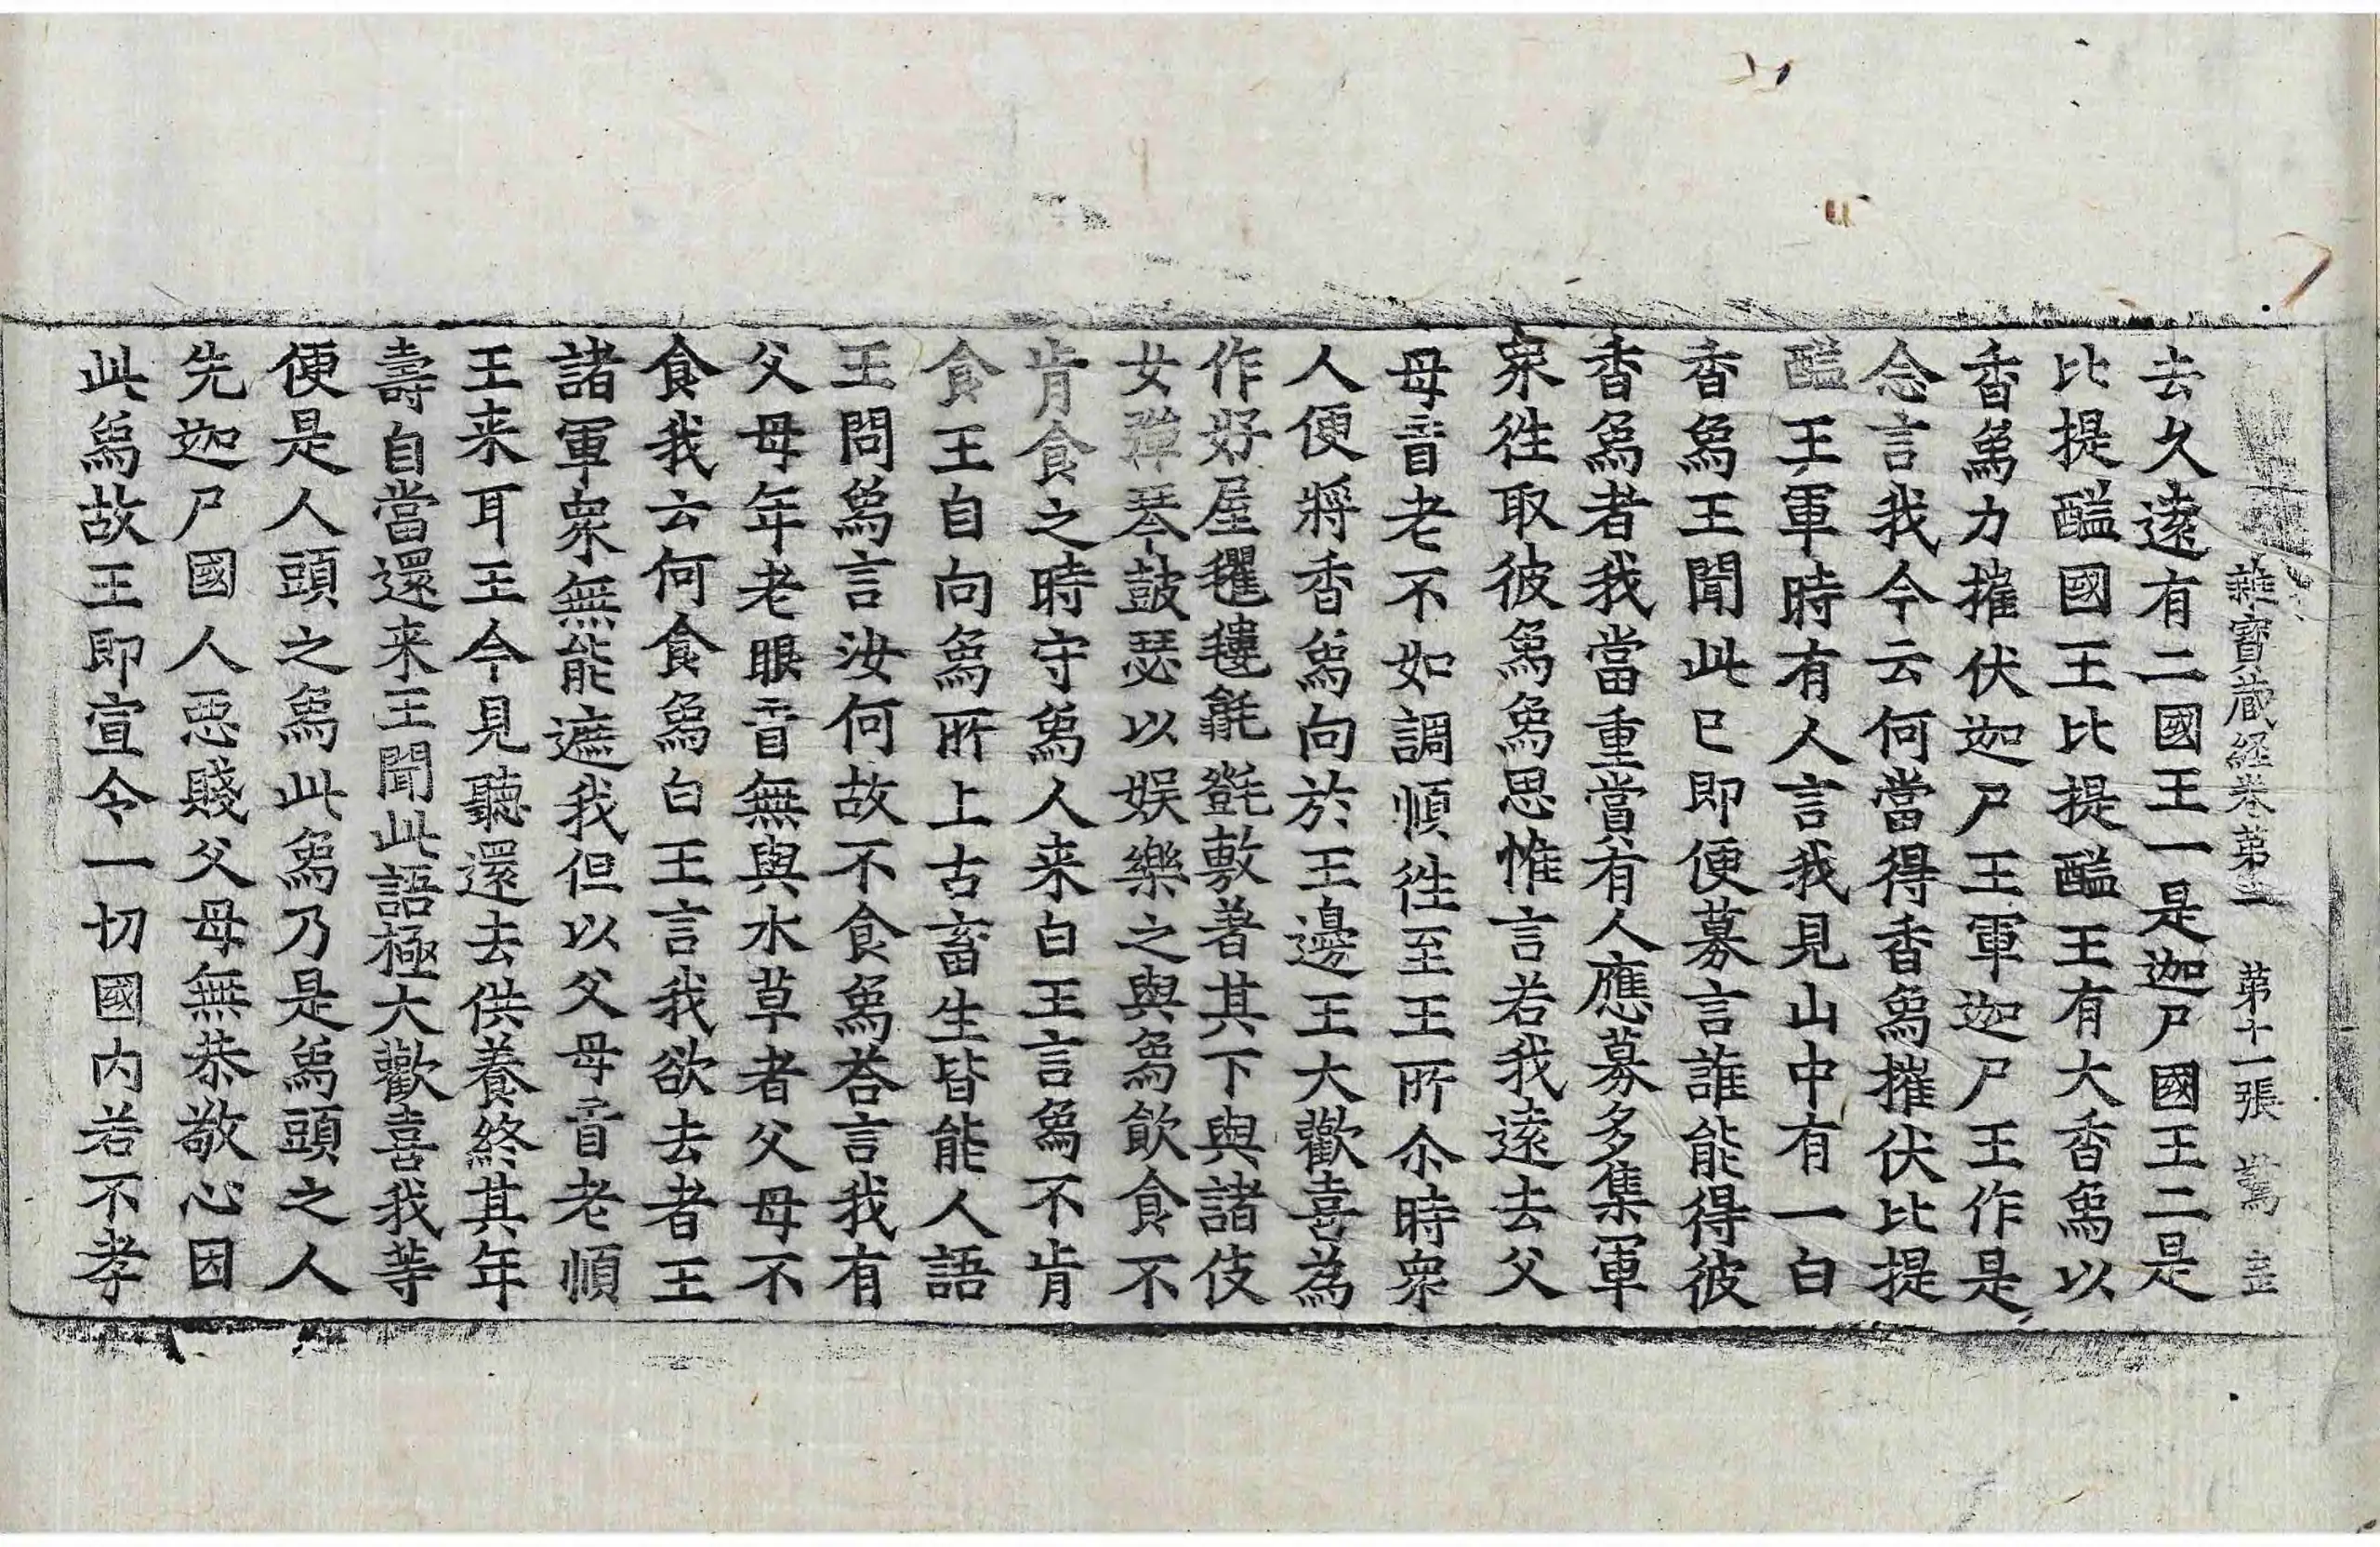 雜寶蔵経卷第二 第十一張 驚
去久遠有二國王一是迦尸國王二是
比提醯國王比提醯王有大香象以
香象力摧伏迦尸王軍迦尸王作是
念言我今云何當得香象摧伏比提
醯王軍時有人言我見山中有一白
香象王聞此已即便募言誰能得彼
香象者我當重賞有人應募多集軍
衆徃取彼象象思惟言若我遠去父
母盲老不如調順徃至王所尒時衆
人便將香象向於王邊王大歡喜為
作好屋氍毺氈毾敷著其下與諸伎
女彈琴鼓瑟以娱樂之與象飲食不
肯食之時守象人来白王言象不肯
食王自向象所上古畜生皆能人語
王問象言汝何故不食象荅言我有
父母年老眼盲無與水草者父母不
食我云何食象白王言我欲去者王
諸軍衆無能遮我但以父母盲老順
王来耳王今見聽還去供養終其年
壽自當還来王聞此語極大歡喜我等
便是人頭之象此象乃是象頭之人
先迦尸國人惡賤父母無恭敬心因
此象故王即宣令一切國内若不孝